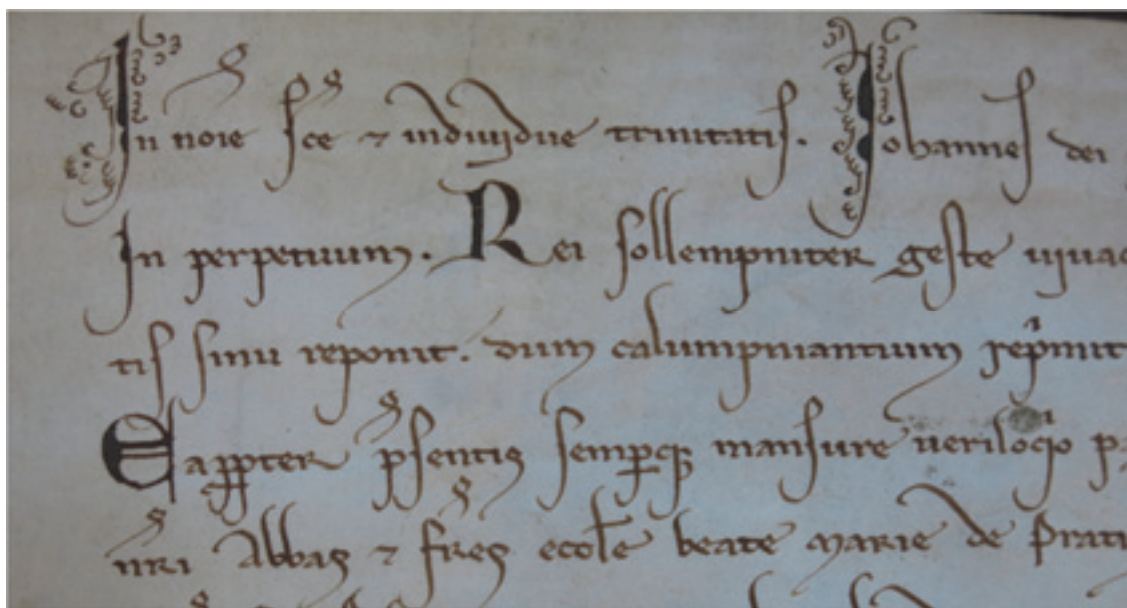 In noie sce ⁊ indiuidue trinitatis. Iohannes dei
In perpetuum. Rei sollempniter geste uiuac
tis sinu reponit. dum calumpniantium rep̃mit
Eapp̱ter p̃sentis semꝑq; mansure ueriloq̇o
nr̃i abbas ⁊ fr̃es eccl̃e beate marie de Prati